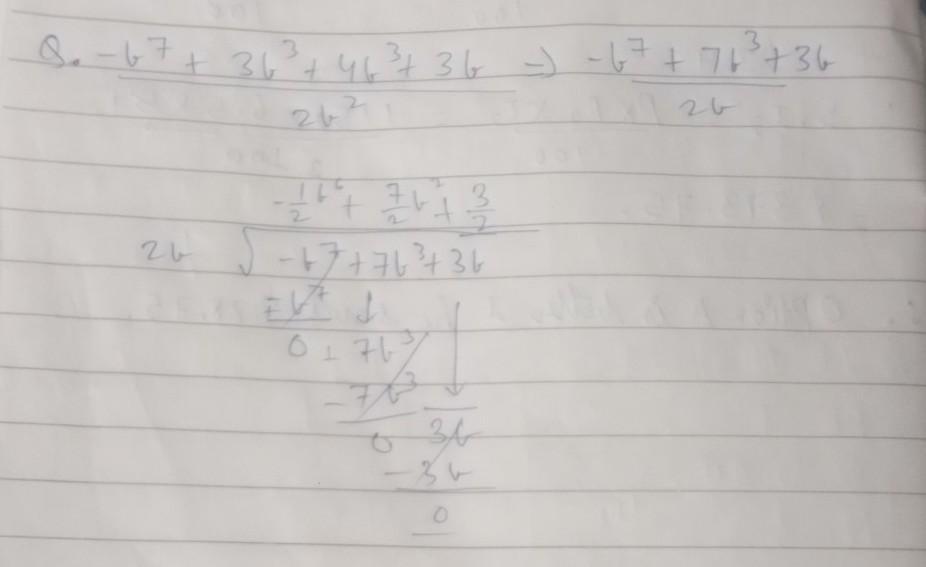 Q. -b⁷ + 3b³ + 4b³ + 3b ⇒ -b⁷ + 7b³ + 3b
2b² 2b
-1/2 b⁶ + 7/2 b² + 3/2
2b √ -b⁷ + 7b³ + 3b
-b⁷ ↓
0 + 7b³
-7b³
0 3b
-3b
0